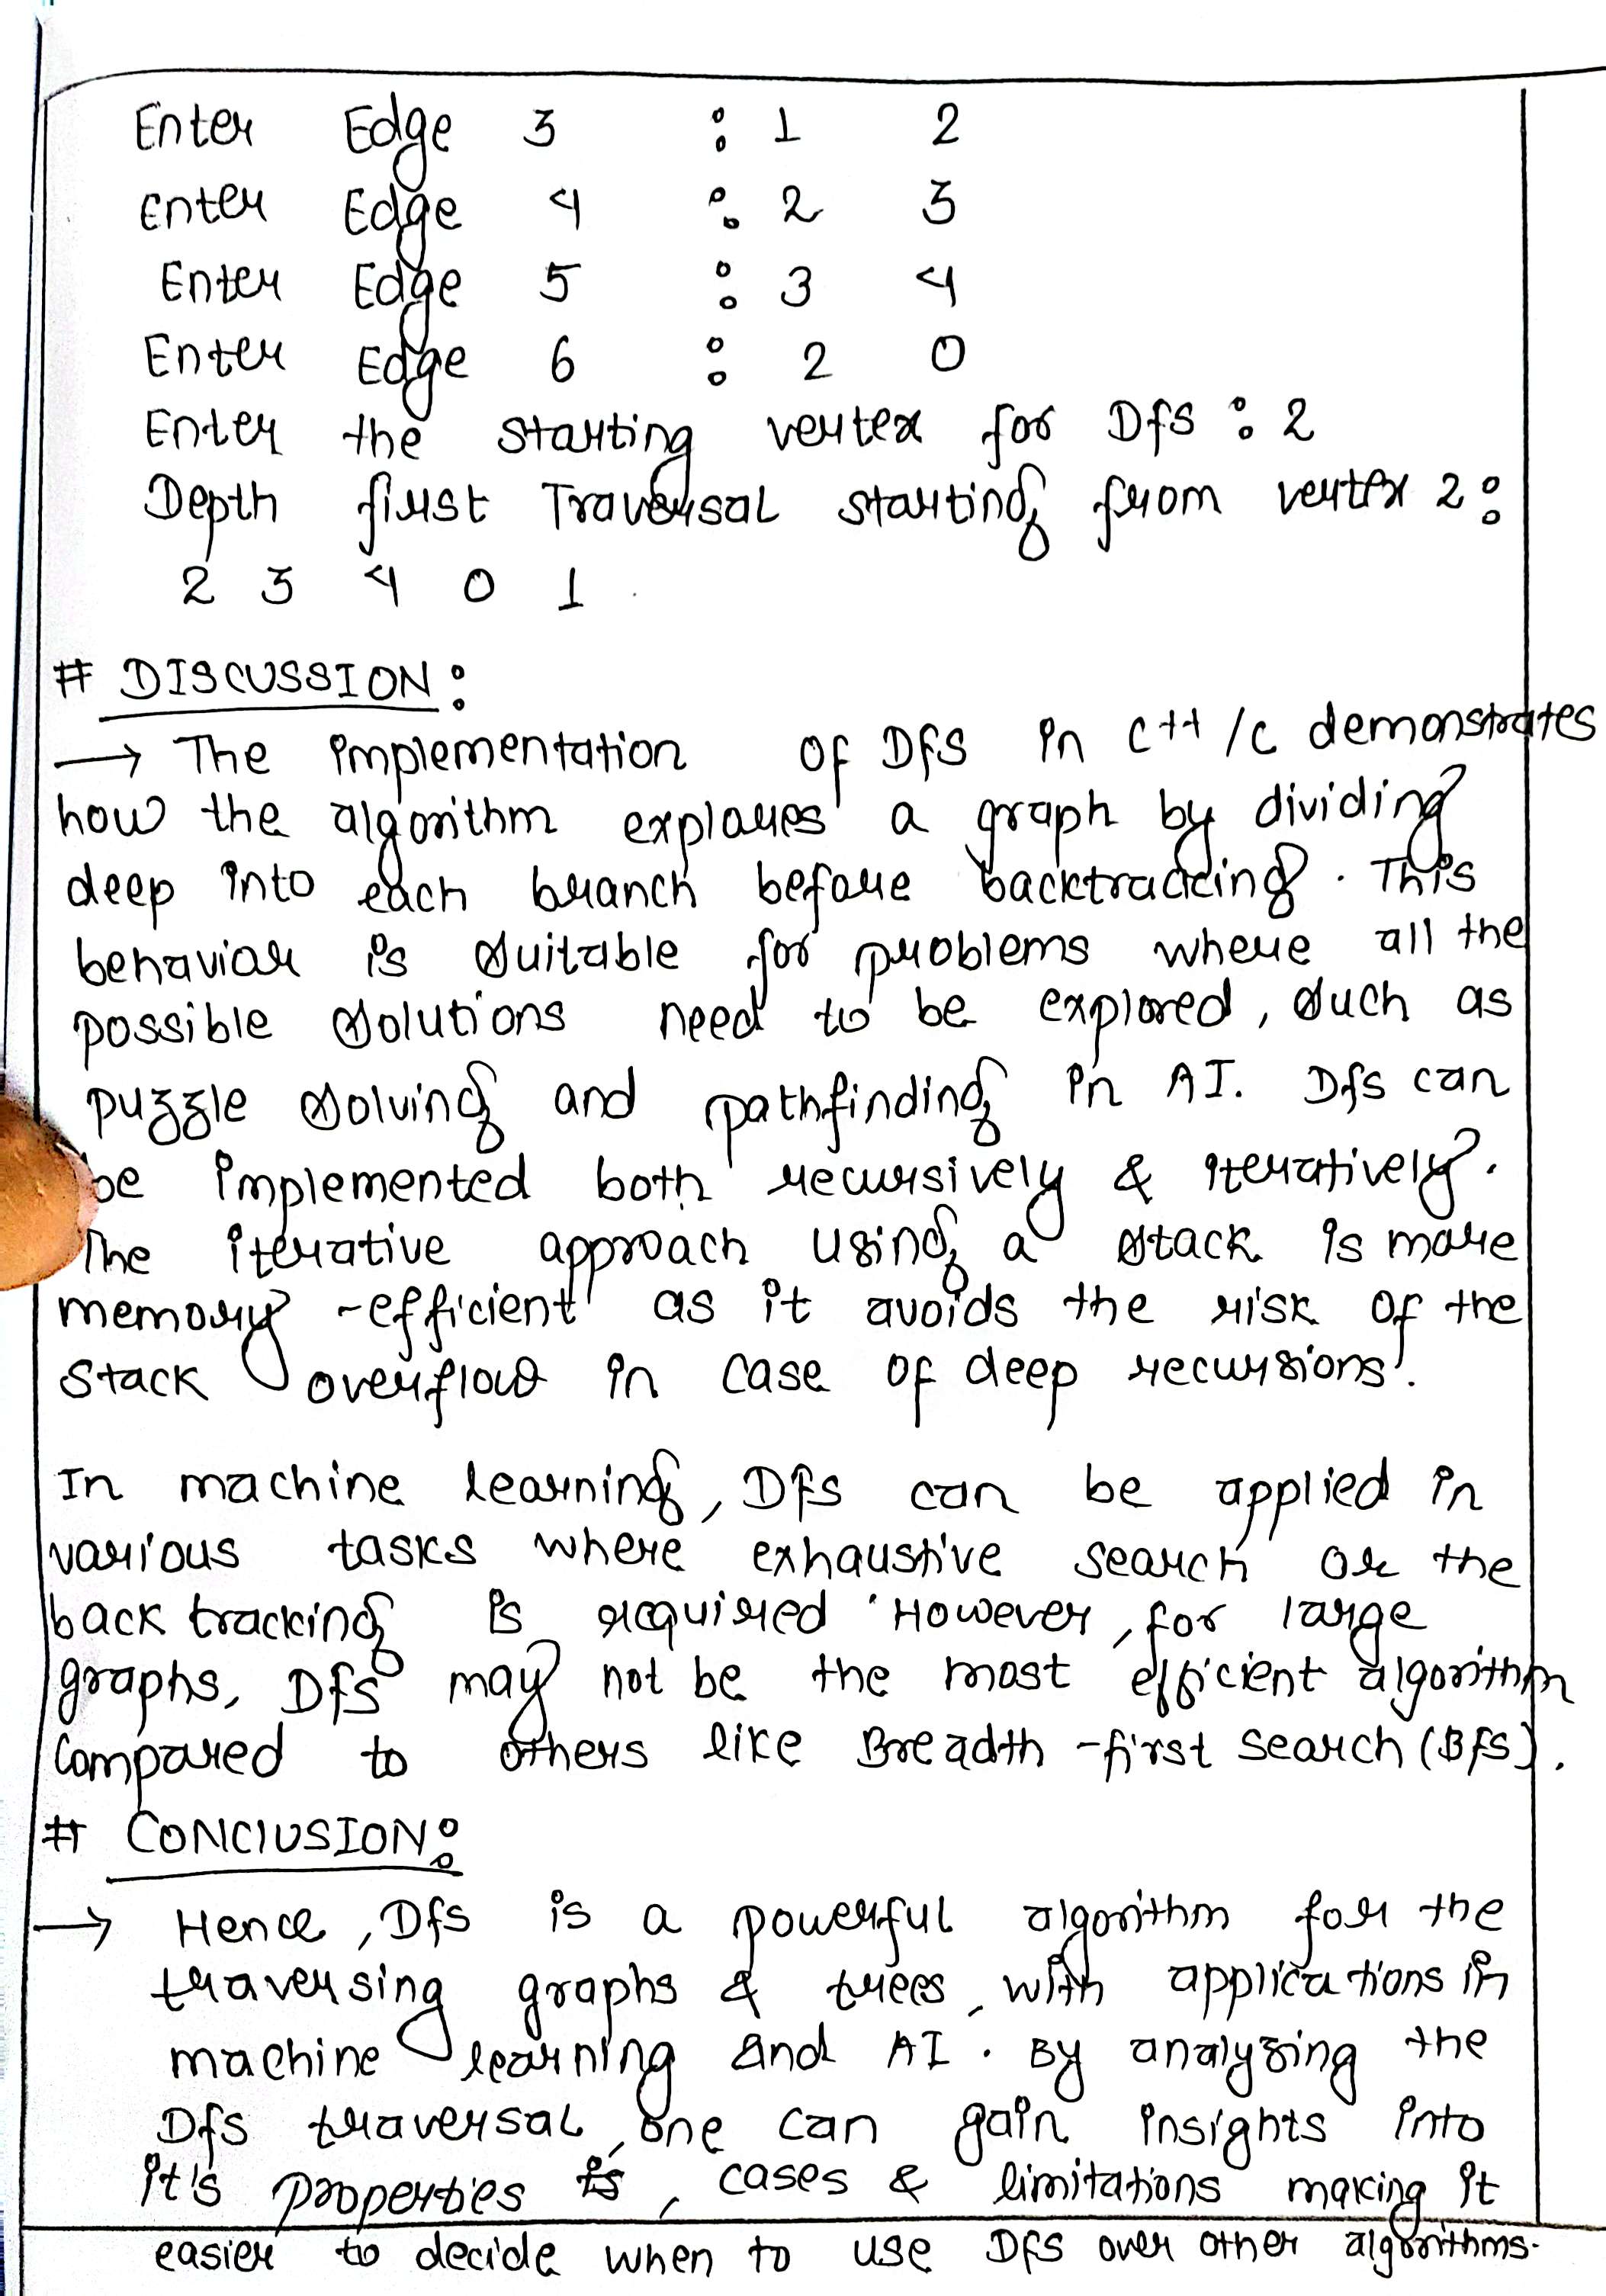 Enter Edge 3 : 1 2
Enter Edge 4 : 2 3
Enter Edge 5 : 3 4
Enter Edge 6 : 2 0
Enter the starting vertex for Dfs : 2
Depth first Traversal starting from vertex 2 :
2 3 4 0 1
# DISCUSSION :
→ The implementation of Dfs in C++ /C demonstrates
how the algorithm explores a graph by dividing
deep into each branch before backtracking. This
behavior is suitable for problems where all the
possible solutions need to be explored, such as
puzzle solving and pathfinding in AI. Dfs can
be implemented both recursively & iteratively.
The iterative approach using a stack is more
memory -efficient as it avoids the risk of the
stack overflow in case of deep recursions.
In machine learning, Dfs can be applied in
various tasks where exhaustive search or the
back tracking is required. However, for large
graphs, Dfs may not be the most efficient algorithm
Compared to others like Breadth -first search (Bfs).
# CONClUSION :
→ Hence, Dfs is a powerful algorithm for the
traversing graphs & trees, with applications in
machine learning and AI. By analyzing the
Dfs traversal, one can gain insights into
it's properties , cases & limitations making it
easier to decide when to use Dfs over other algorithms.